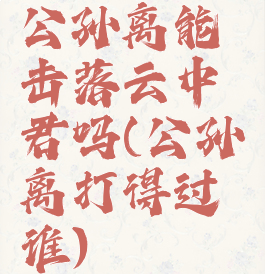 公孙离能
击落云中
君吗(公孙
离打得过
谁)